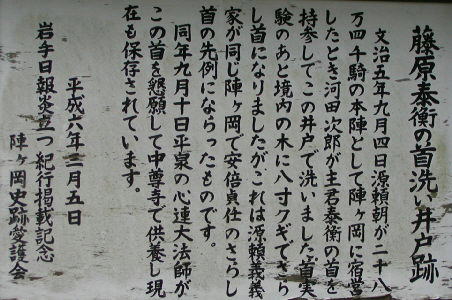 藤原泰衡の首洗い井戸跡
文治五年九月四日源頼朝が二十八
万四千騎の本陣として陣ヶ岡に宿営
したとき河田次郎が主君泰衡の首を
持参してこの井戸で洗いました首実
験のあと境内の木に八寸クギでさら
し首になりましたがこれは源頼義義
家が同じ陣ヶ岡で安倍貞任のさらし
首の先例にならったものです。
同年九月十日平泉の心連大法師が
この首を懇願して中尊寺で供養し現
在も保存されています。
平成六年三月五日
岩手日報炎立つ紀行掲載記念
陣ヶ岡史跡愛護会